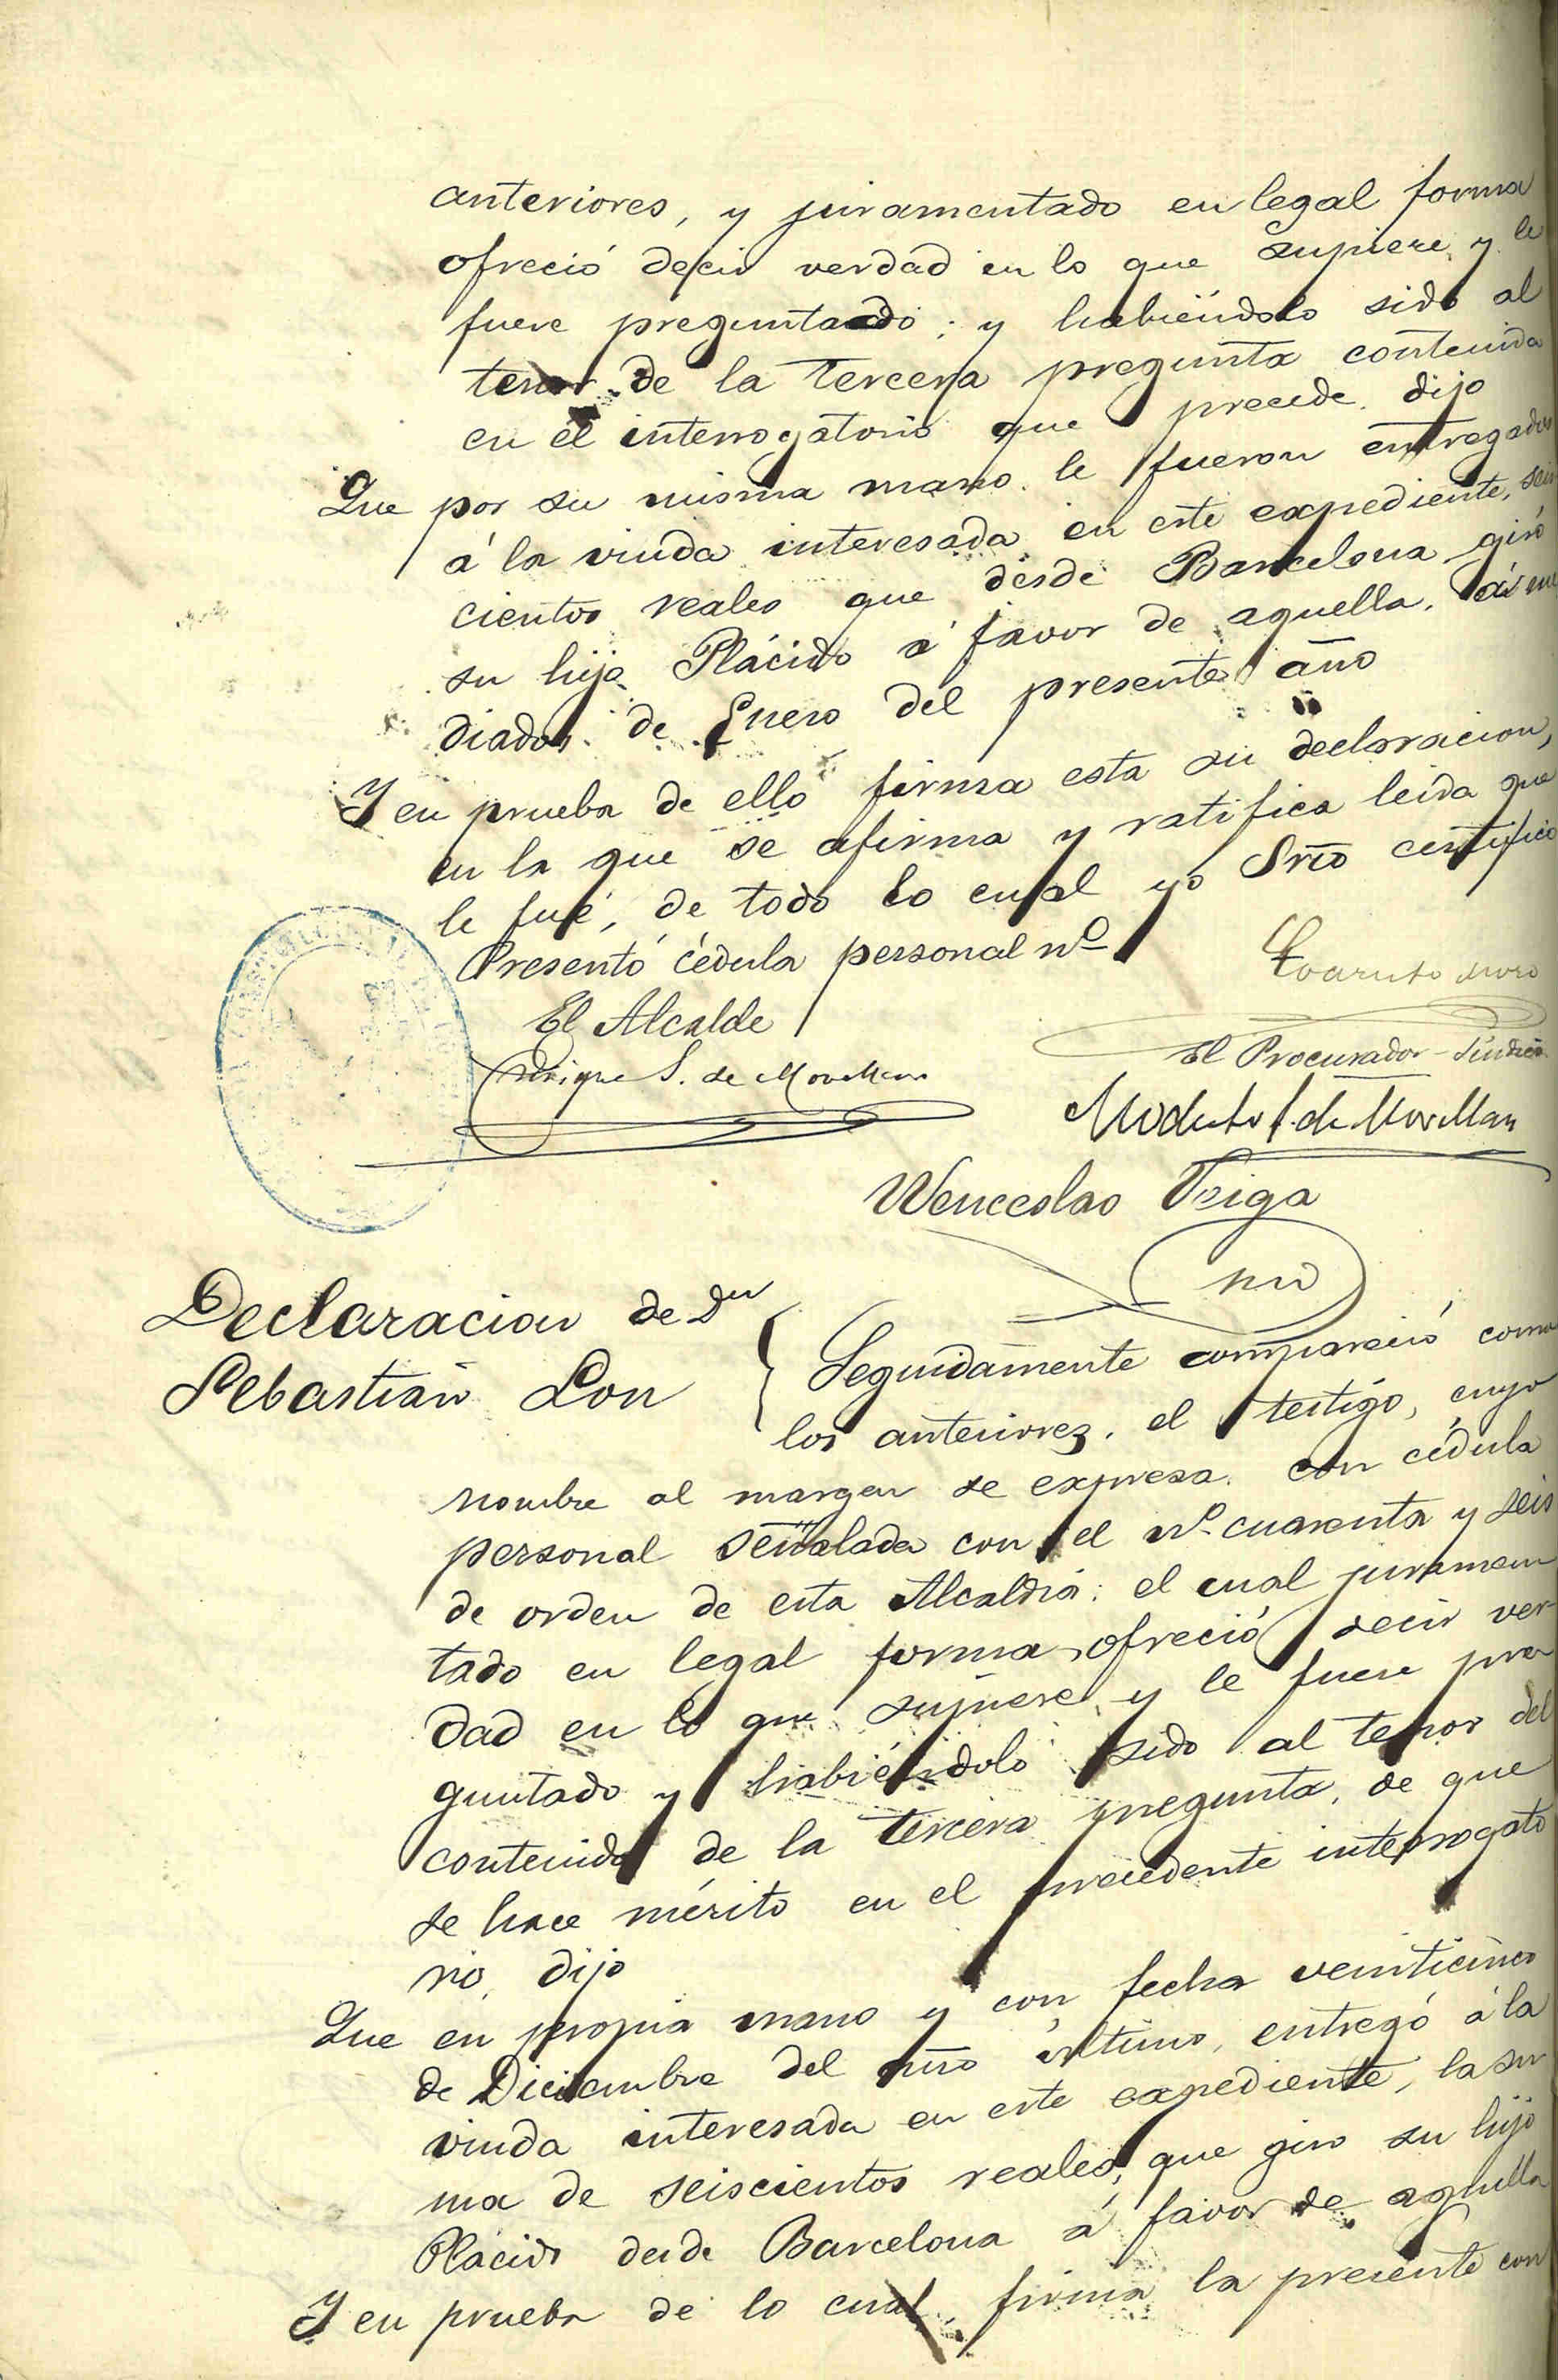 anteriores, y juramentado en legal forma
ofreció decir verdad en lo que supiere y le
fuere preguntado; y habiéndolo sido al
tenor de la tercera pregunta contenida
en el interrogatorio que precede. dijo
Que por su misma mano le fueron entregados
á la viuda interesada en este expediente, seis
cientos reales que desde Barcelona giró
su hijo Plácido á favor de aquella, á me
diados de Enero del presente año
Y en prueba de ello firma esta su declaracion,
en la que se afirma y ratifica leida que
le fué, de todo lo cual yo Srio certifico
Presentó cédula personal nº
El Alcalde
El Procurador-Síndico
Wenceslao Veiga
Declaracion de Dn
Sebastián Lon
Seguidamente compareció como
los anteriores, el testigo, cuyo
nombre al margen se expresa. con cédula
personal señalada con el nº cuarenta y seis
de orden de esta Alcaldia: el cual juramen
tado en legal forma, ofreció decir ver-
dad en lo que supiere y le fuere pre
guntado y habiéndolo sido al tenor del
contenido de la tercera pregunta, de que
se hace mérito en el precedente interrogato
rio, dijo
Que en propia mano y con fecha veinticinco
de Diciembre del año último, entregó á la
viuda interesada en este expediente, la su
ma de seiscientos reales, que giro su hijo
Plácido desde Barcelona á favor de aquella
Y en prueba de lo cual, firma la presente con